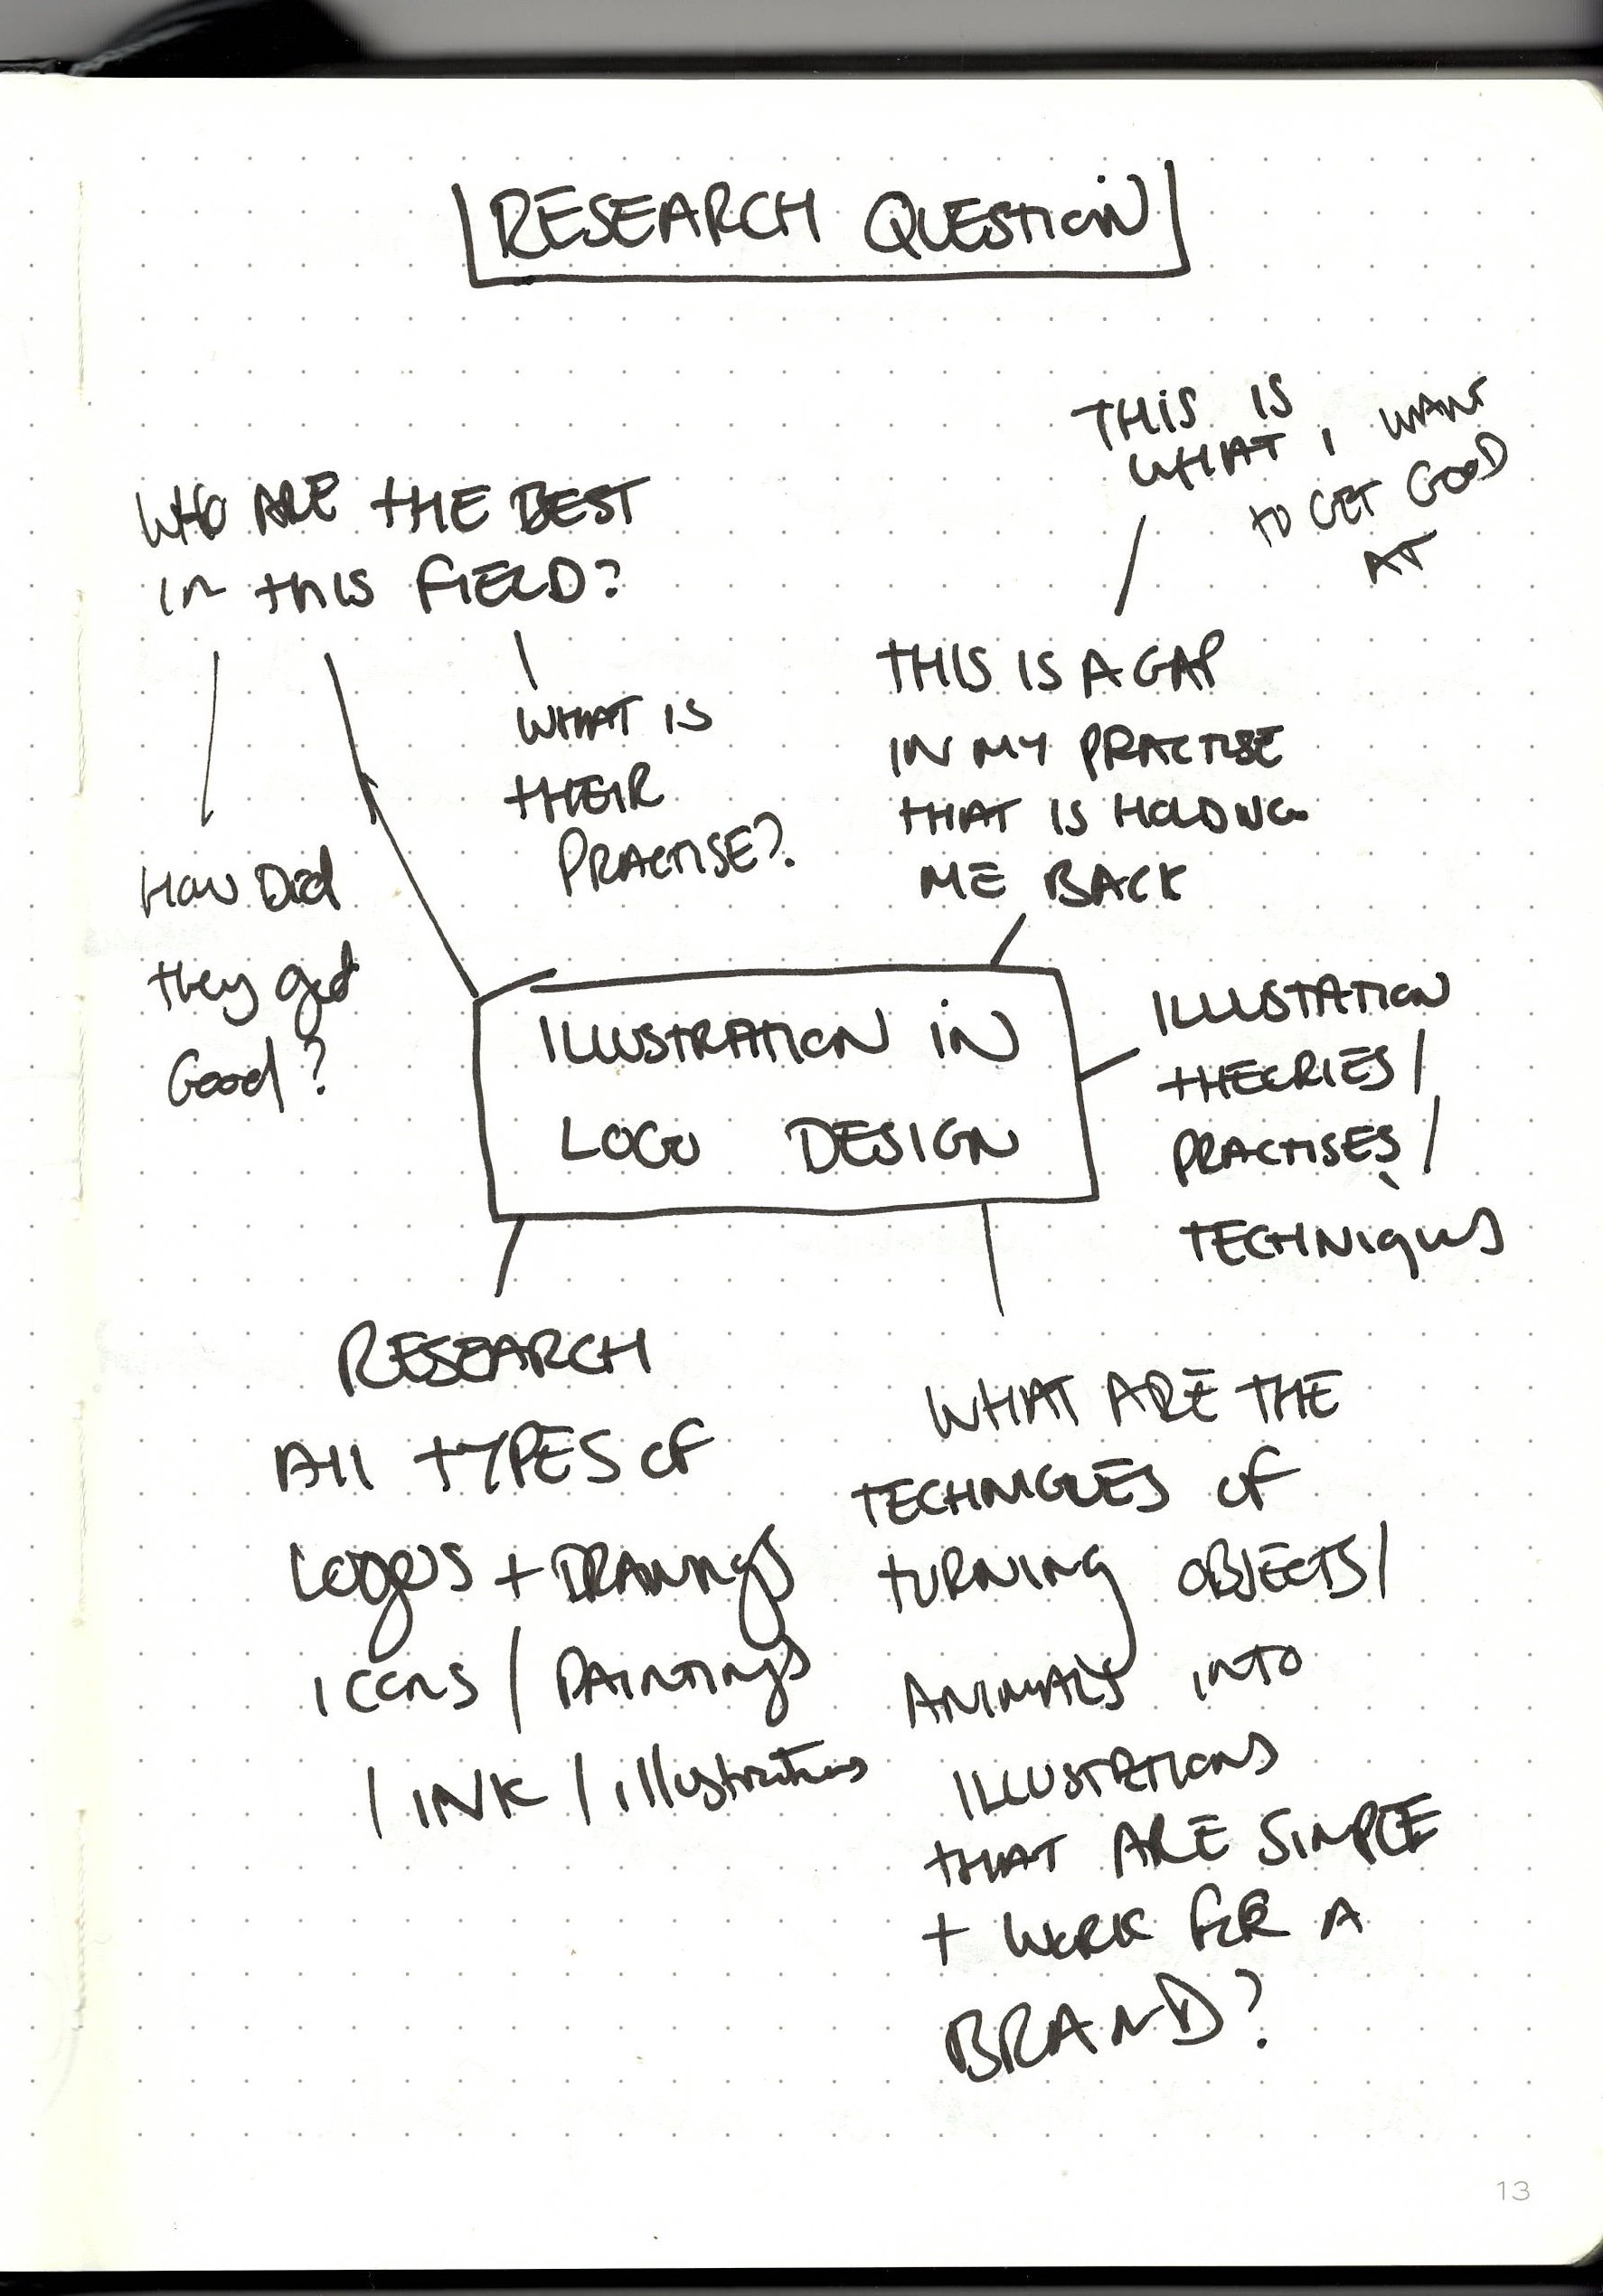 RESEARCH QUESTION
THIS IS
WHAT I WANT
TO GET GOOD
AT
WHO ARE THE BEST
IN THIS FIELD?
WHAT IS
THEIR
PRACTISE?
THIS IS A GAP
IN MY PRACTISE
THAT IS HOLDING
ME BACK
How Did
they get
Good?
ILLUSTRATION IN
LOGO DESIGN
ILLUSTATION
THEORIES/
PRACTISES/
TECHNIQUES
RESEARCH
All TYPES OF
LOGOS + DRAWINGS
ICONS / PAINTINGS
/ INK / illustrations
WHAT ARE THE
TECHNIQUES OF
TURNING OBJECTS/
ANIMALS INTO
ILLUSTRATIONS
THAT ARE SIMPLE
+ WORK FOR A
BRAND?
13